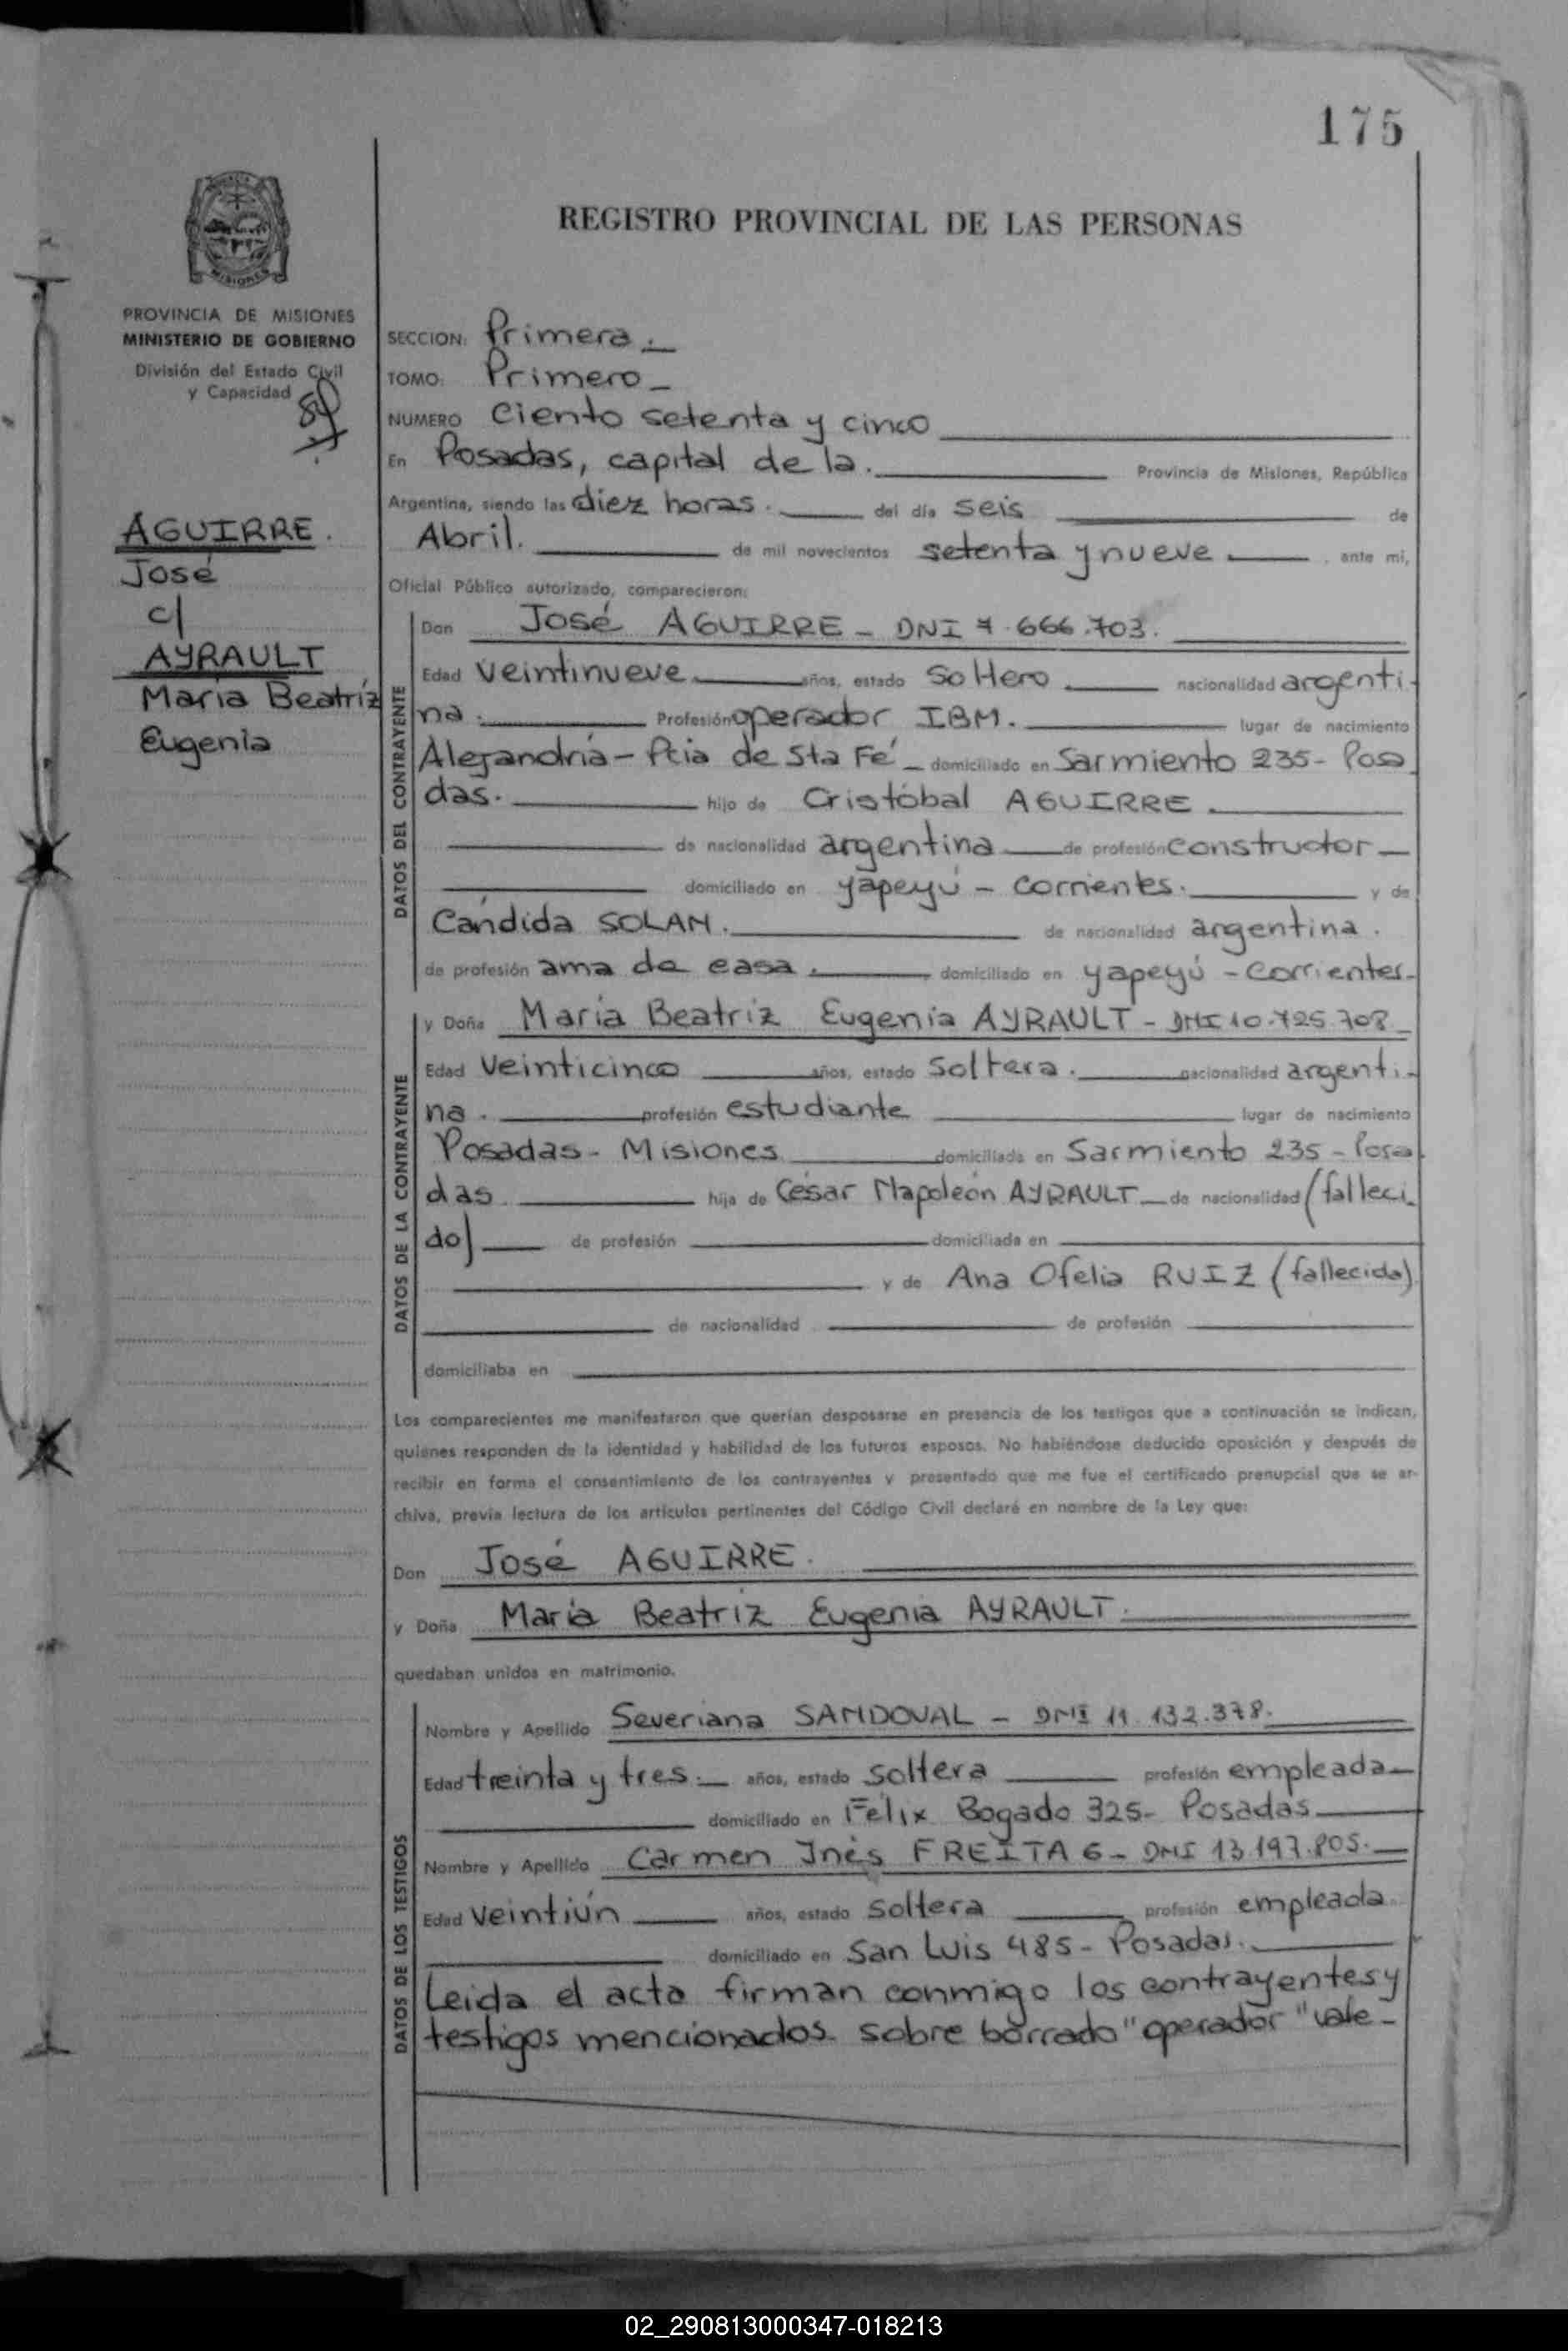 175
PROVINCIA DE MISIONES
MINISTERIO DE GOBIERNO
División del Estado Civil
y Capacidad
AGUIRRE.
José
c/
AYRAULT
María Beatríz
Eugenia
REGISTRO PROVINCIAL DE LAS PERSONAS
SECCION: Primera.
TOMO: Primero
NUMERO ciento setenta y cinco
En Posadas, capital de la. Provincia de Misiones, República
Argentina, siendo las diez horas. del día seis de
Abril. de mil novecientos setenta y nueve , ante mi,
Oficial Público autorizado, comparecieron:
DATOS DEL CONTRAYENTE
Don José AGUIRRE - DNI 7.666.703.
Edad veintinueve años, estado soltero nacionalidad argenti-
na. Profesión operador IBM. lugar de nacimiento
Alejandría - Pcia de Sta Fé domiciliado en Sarmiento 235 - Posa
das. hijo de Cristóbal AGUIRRE.
de nacionalidad argentina de profesión constructor
domiciliado en yapeyú - Corrientes. y de
Cándida SOLAN. de nacionalidad argentina.
de profesión ama de casa. domiciliado en yapeyú - Corrientes-
DATOS DE LA CONTRAYENTE
y Doña María Beatríz Eugenia AYRAULT - DNI 10.725.708
Edad veinticinco años, estado soltera. nacionalidad argenti-
na. profesión estudiante lugar de nacimiento
Posadas - Misiones domiciliada en Sarmiento 235 - Posa
das hija de César Napoleón AYRAULT de nacionalidad (falleci
do) de profesión domiciliada en
y de Ana Ofelia RUIZ (fallecida)
de nacionalidad de profesión
domiciliaba en
Los comparecientes me manifestaron que querían desposarse en presencia de los testigos que a continuación se indican,
quienes responden de la identidad y habilidad de los futuros esposos. No habiéndose deducido oposición y después de
recibir en forma el consentimiento de los contrayentes y presentado que me fue el certificado prenupcial que se ar-
chiva, previa lectura de los artículos pertinentes del Código Civil declaré en nombre de la Ley que:
Don José AGUIRRE.
y Doña María Beatríz Eugenia AYRAULT.
quedaban unidos en matrimonio.
DATOS DE LOS TESTIGOS
Nombre y Apellido Severiana SANDOVAL - DNI 11.132.378.
Edad treinta y tres. años, estado soltera profesión empleada
domiciliado en Félix Bogado 325- Posadas
Nombre y Apellido Carmen Inés FREITAG - DNI 13.197.805.
Edad veintiún años, estado soltera profesión empleada
domiciliado en San Luis 485- Posadas.
Leida el acta firman conmigo los contrayentes y
testigos mencionados. sobre borrado "operador" vale-
02_290813000347-018213